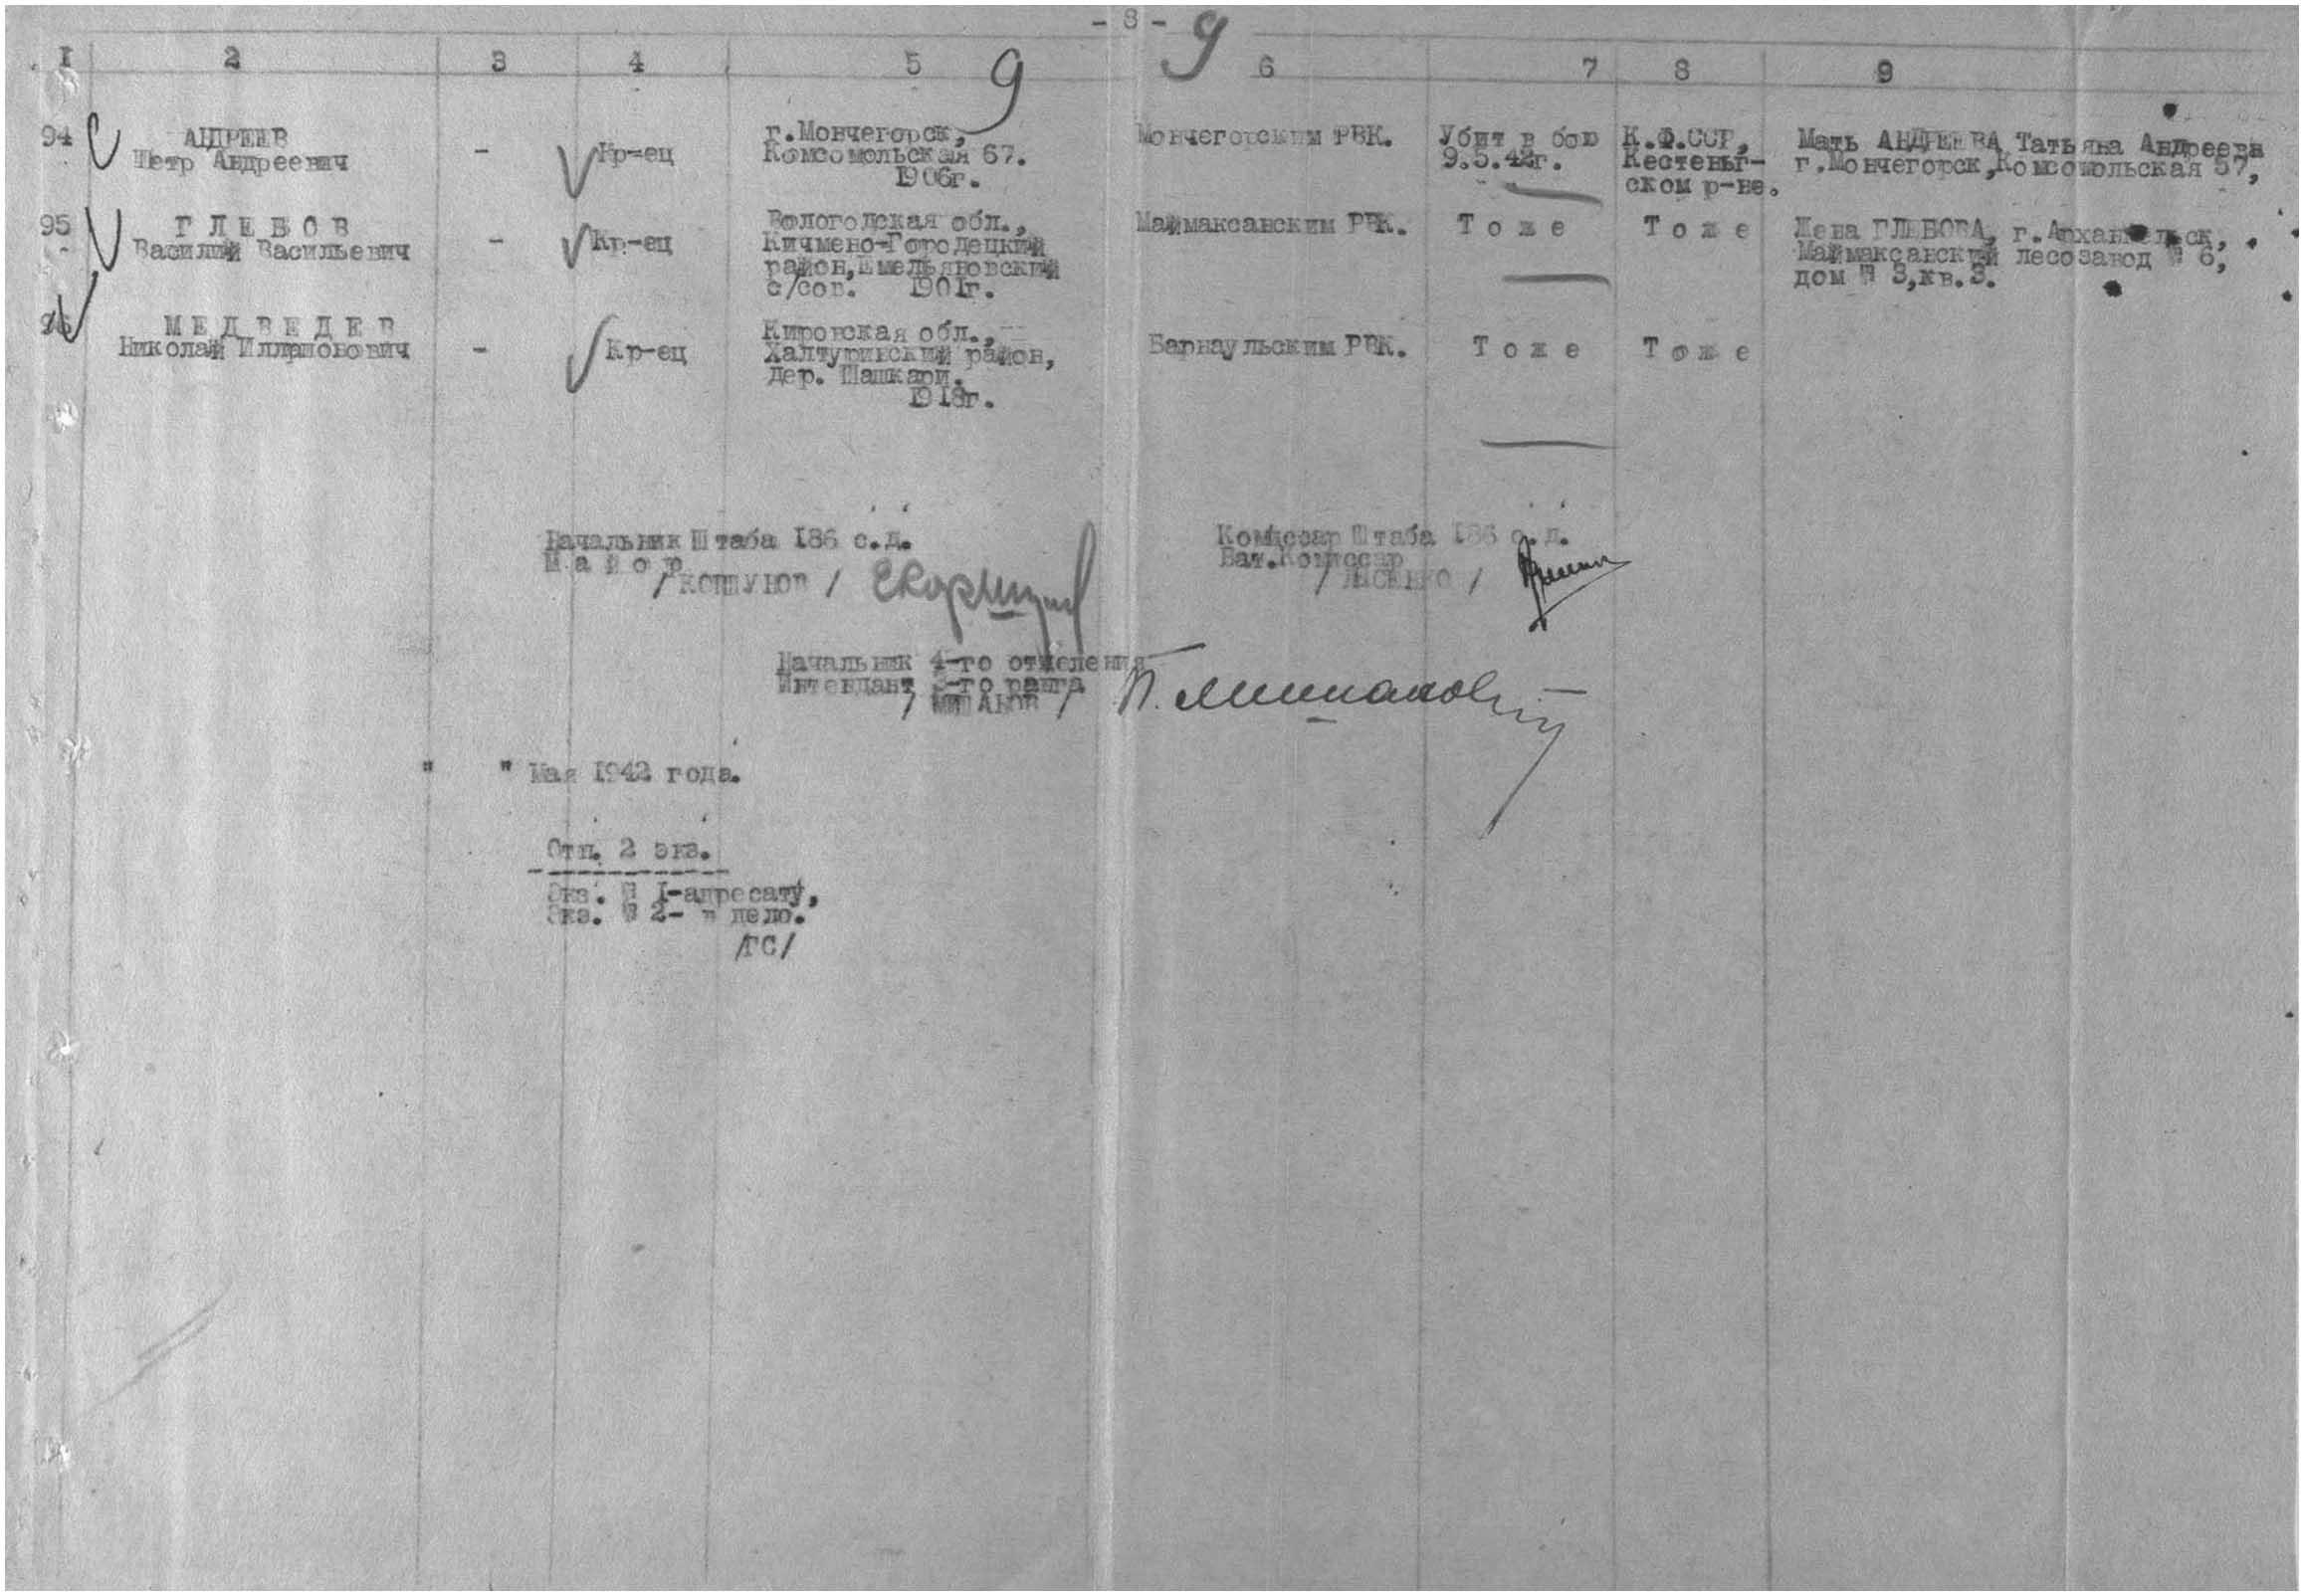 - 8 -
9
9
I 2 3 4 5 6 7 8 9
94 АНДРЕЕВ
Петр Андреевич
-
Кр-ец
г.Мончегорск,
Комсомольская 67.
1906г.
Мончегорским РВК.
Убит в бою
9.5.42г.
К.Ф.ССР,
Кестеньг-
ском р-не.
Мать АНДРЕЕВА Татьяна Андреевн
г.Мончегорск,Комсомольская 57,
95 Г Л Е Б О В
Василий Васильевич
-
Кр-ец
Вологодская обл.,
Кичмено-Городецкий
район,Емельяновский
с/сов. 1901г.
Маймаксанским РВК.
Т о ж е
Т о ж е
Жена ГЛЕБОВА, г.Архангельск,
Маймаксанский лесозавод № 6,
дом № 3,кв.3.
96 М Е Д В Е Д Е В
Николай
-
Кр-ец
Кировская обл.,
Халтуринский район,
дер. Шашкари.
1918г.
Барнаульским РВК.
Т о ж е
Т о ж е
Начальник Штаба 186 с.д.
М а й о р
/ КОРШУНОВ /
Комиссар Штаба 186 с.д.
Бат.Комиссар
/ ЛЫСЕНКО /
Начальник 4-го отделения
Интендант 3-го ранга
/ МИШАНОВ /
" " Мая 1942 года.
Отп. 2 экз.
Экз. № 1-адресату,
Экз. № 2- в дело.
/ГС/